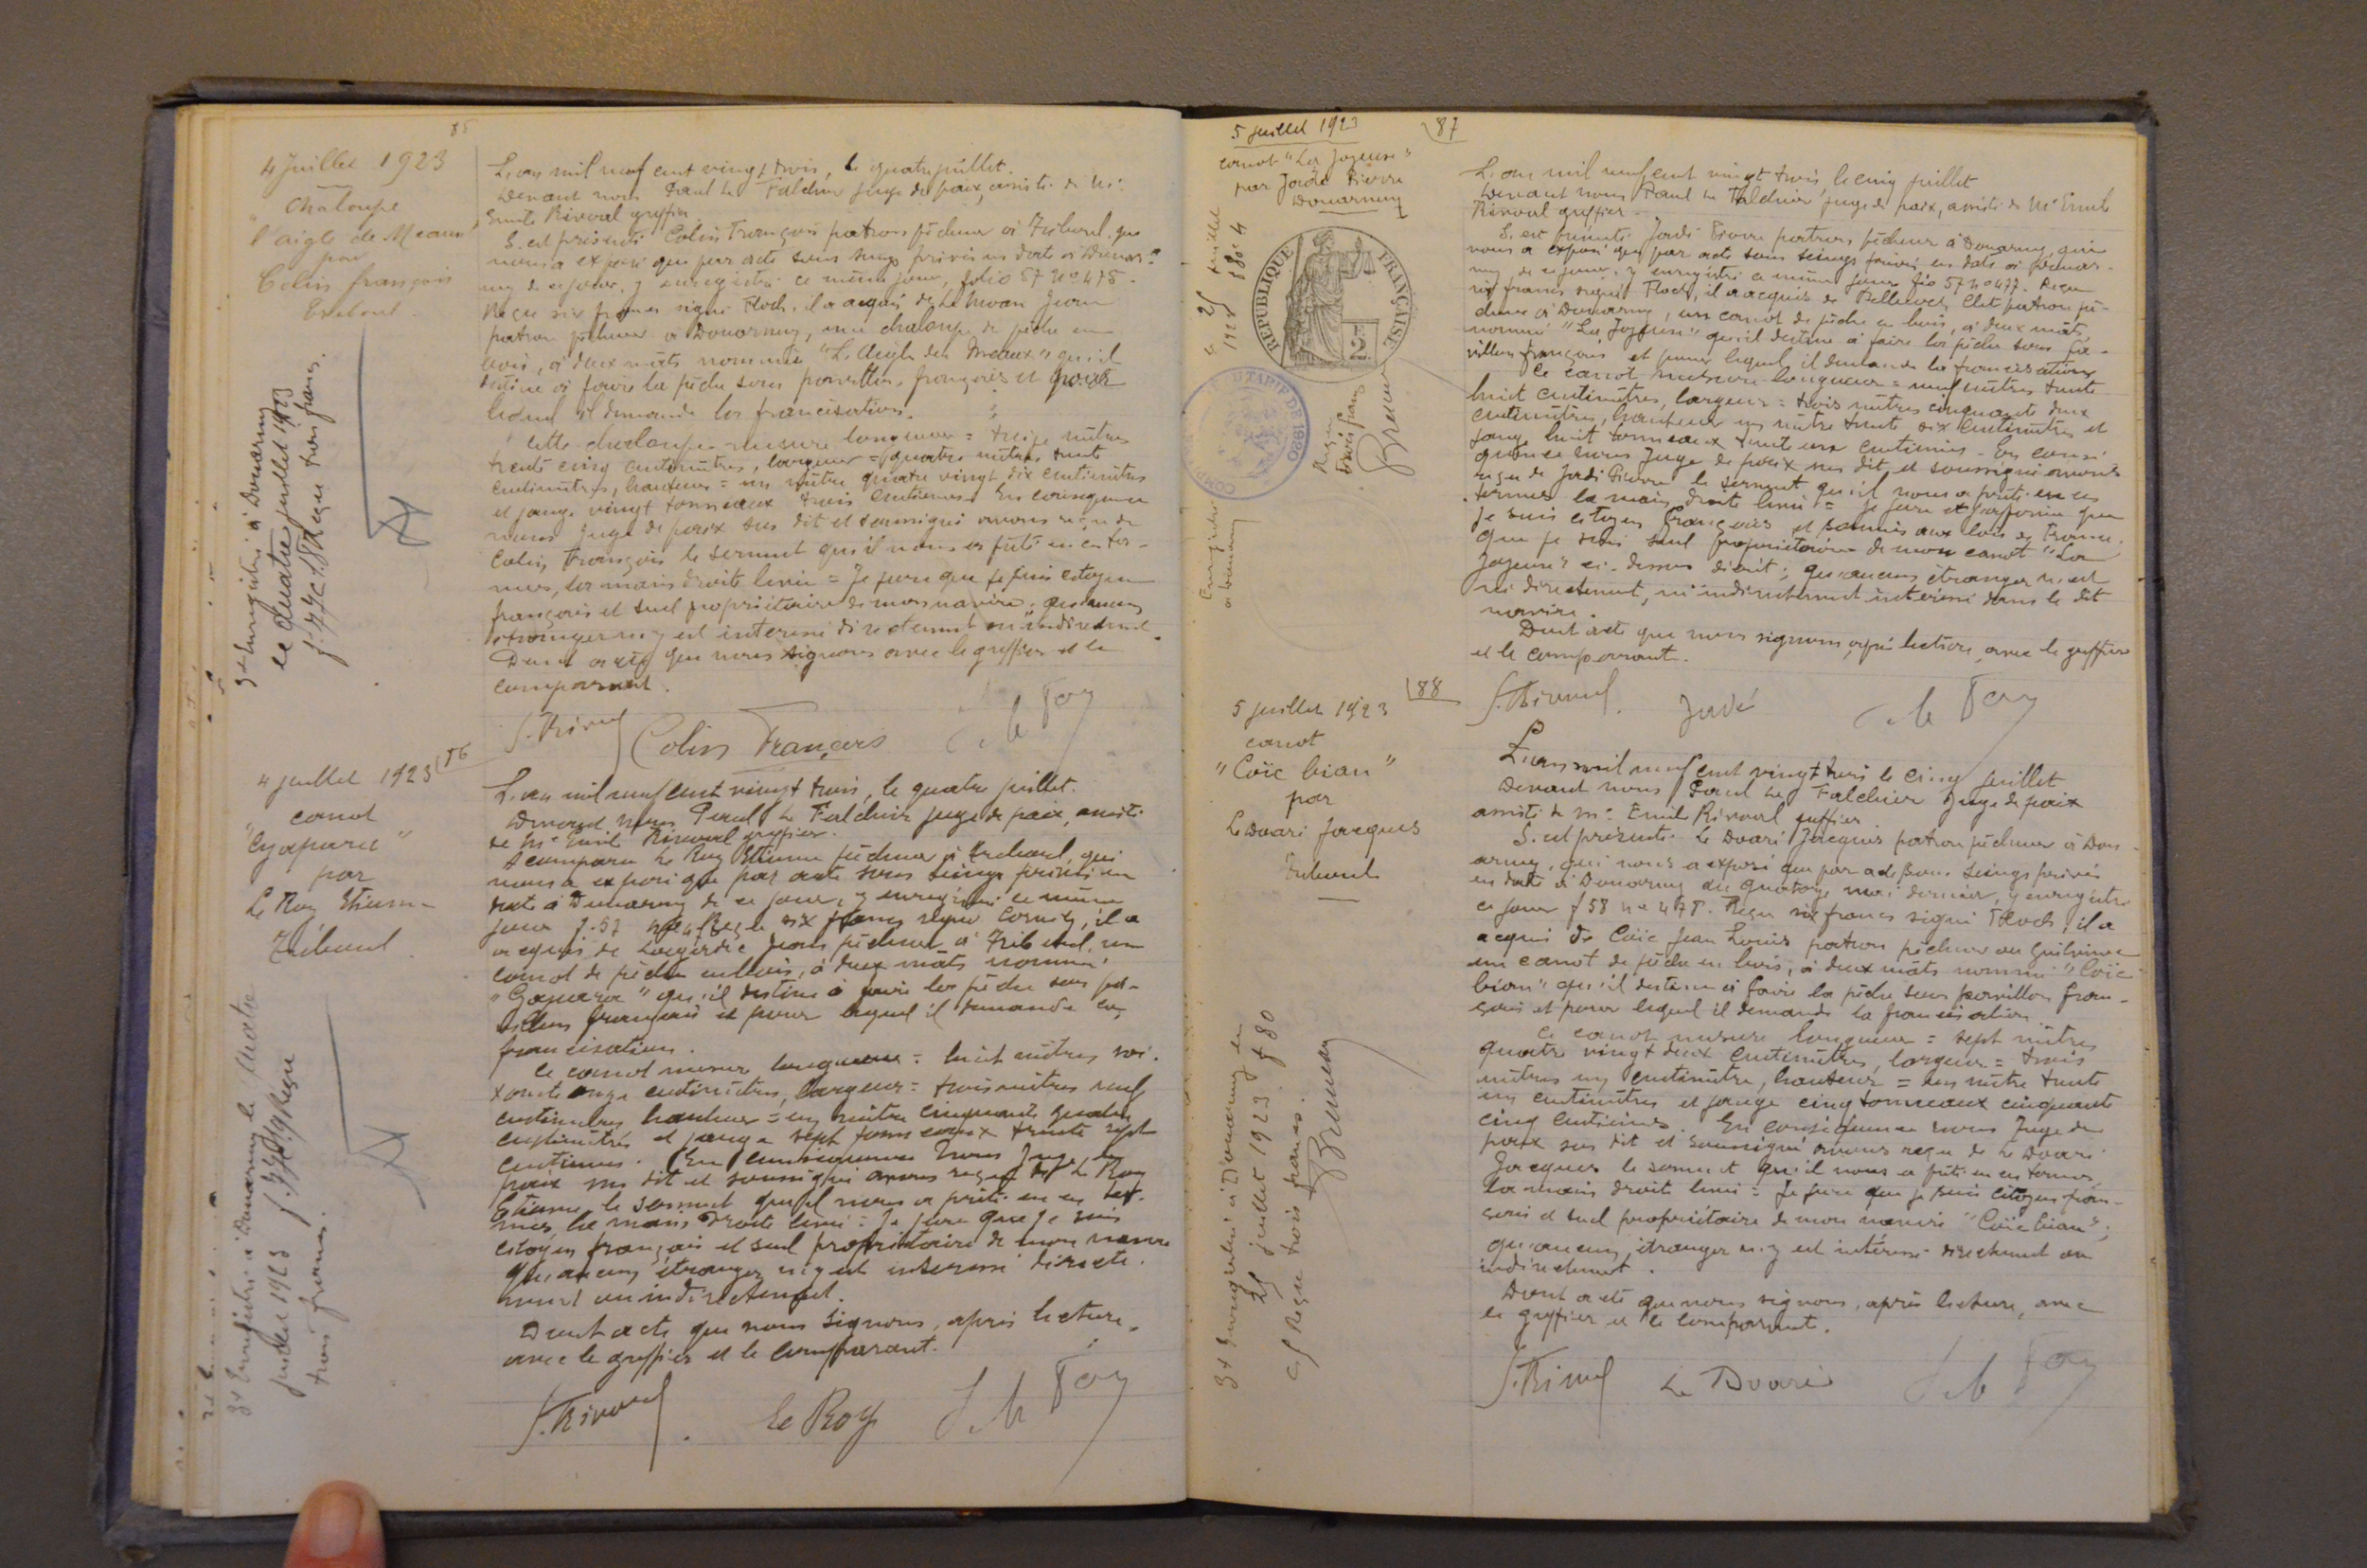 85
4 Juillet 1923
Chaloupe
"l'aigle de Meaux"
par
Colin françois
Tréboul.
Enregistré à Douarnenez
le quatre juillet 1923
Reçu trois francs.
L'an mil neuf cent vingt trois, le quatre juillet.
Devant nous Paul Le Falchier juge de paix, assisté de Me
Emile Rivoal greffier.
S'est présenté Colin François patron pêcheur à Tréboul, qui
nous a exposé que par acte sous seings privés en date à Douar-
nenez de ce jour, y enregistré ce même jour, folio 57 No 475.
Reçu six francs signé Floch, il a acquis de Jean
patron pêcheur à Douarnenez, une chaloupe de pêche en
bois, à deux mâts nommée "L'Aigle des Meaux" qu'il
destine à faire la pêche sous pavillon français et pour
lequel il demande la francisation.
Cette chaloupe mesure longueur = treize mètres
trente cinq centimètres, largeur = quatre mètres trente
centimètres, hauteur = un mètre quatre vingt dix centimètres
et jauge vingt tonneaux trois centièmes. En conséquence
nous Juge de paix sus dit et soussigné avons reçu de
Colin François le serment qu'il nous a prêté en ces ter-
mes, la main droite levée = Je jure que je suis citoyen
français et seul propriétaire de mon navire; qu'aucun
étranger n'y est intéressé directement ou indirectement.
Dont acte que nous signons avec le greffier et le
comparant.
E. Rivoal Colin François
86
4 juillet 1923
canot
"Gapara"
par
Le Roy Etienne
Tréboul.
Enregistré à Douarnenez le quatre
juillet 1923 Reçu
trois francs.
L'an mil neuf cent vingt trois, le quatre juillet.
Devant nous Paul Le Falchier juge de paix, assisté
de Me Emile Rivoal greffier.
A comparu Le Roy Etienne pêcheur à Tréboul, qui
nous a exposé que par acte sous seings privés en
date à Douarnenez de ce jour, y enregistré ce même
jour f. 57 Reçu six francs signé il a
acquis de Jean pêcheur à Tréboul, un
canot de pêche en bois, à deux mâts nommé
qu'il destine à faire la pêche sous pa-
villon français et pour lequel il demande la
francisation.
Ce canot mesure longueur = huit mètres soi-
xante onze centimètres, largeur = trois mètres neuf
centimètres hauteur = un mètre cinquante quatre
centimètres et jauge sept tonneaux trente sept
centièmes. En conséquence Nous Juge de
paix sus dit et soussigné avons reçu de Le Roy
Etienne le serment qu'il nous a prêté en ces ter-
mes, la main droite levée = Je jure que je suis
citoyen français et seul propriétaire de mon navire
qu'aucun étranger n'y est intéressé directe-
ment ou indirectement.
Dont acte que nous signons, après lecture,
avec le greffier et le comparant.
E. Rivoal le Roy
5 juillet 1923
87
canot "La Joyeuse"
par Jadé Pierre
Douarnenez
REPUBLIQUE FRANÇAISE
Enregistré
à Douarnenez
Reçu
trois francs
L'an mil neuf cent vingt trois, le cinq juillet
Devant nous Paul Le Falchier juge de paix, assisté de Me Emile
Rivoal greffier.
S'est présenté Jadé Pierre patron pêcheur à Douarnenez, qui
nous a exposé que par acte sous seings privés en date à Douar-
nenez, de ce jour, y enregistré ce même jour fio 57 No 477. Reçu
six francs signé Floch, il a acquis de patron pê-
cheur à Douarnenez, un canot de pêche en bois, à deux mâts,
nommé "La Joyeuse" qu'il destine à faire la pêche sous pa-
villon français et pour lequel il demande la francisation.
Ce canot mesure longueur = neuf mètres trente
huit centimètres, largeur = trois mètres cinquante deux
centimètres, hauteur un mètre trente six centimètres et
jauge huit tonneaux trente un centièmes. En consé-
quence nous Juge de paix sus dit et soussigné avons
reçu de Jadé Pierre le serment qu'il nous a prêté en ces
termes la main droite levée = Je jure et que
je suis citoyen français et soumis aux lois de France.
que je suis seul propriétaire de mon canot "La
Joyeuse" ci-dessus décrit; qu'aucun étranger n'est
ni directement, ni indirectement intéressé dans le dit
navire.
Dont acte que nous signons, après lecture, avec le greffier
et le comparant.
E. Rivoal. Jadé
88
5 juillet 1923
canot
"Coïc bian"
par
Le Doaré Jacques
Tréboul
Enregistré à Douarnenez le
25 juillet 1923 f 80
Reçu trois francs.
L'an mil neuf cent vingt trois le cinq juillet
Devant nous Paul Le Falchier Juge de paix
assisté de Me Emile Rivoal greffier
S'est présenté Le Doaré Jacques patron pêcheur à Dou-
arnenez, qui nous a exposé que par acte sous seings privés
en date à Douarnenez du quatorze mai dernier, y enregistré
ce jour f 58 No 478. Reçu six francs signé Floch, il a
acquis de Coïc Jean Louis patron pêcheur au Guilvinec
un canot de pêche en bois, à deux mâts nommé "Coïc
bian" qu'il destine à faire la pêche sous pavillon fran-
çais et pour lequel il demande la francisation
Ce canot mesure longueur = sept mètres
quatre vingt deux centimètres, largeur = trois
mètres un centimètre, hauteur = un mètre trente
un centimètres et jauge cinq tonneaux cinquante
cinq centièmes. En conséquence nous Juge de
paix sus dit et soussigné avons reçu de Le Doaré
Jacques le serment qu'il nous a prêté en ces termes
la main droite levée = Je jure que je suis citoyen fran-
çais et seul propriétaire de mon navire "Coïc bian";
qu'aucun étranger n'y est intéressé directement ou
indirectement.
Dont acte que nous signons, après lecture, avec
le greffier et le comparant.
E. Rivoal Le Doaré